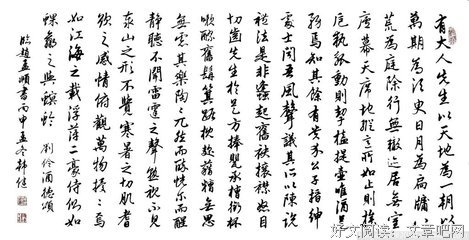 有大人先生以天地為一朝以
萬期為須臾日月為扃牖八
荒為庭除行無轍迹居無室
廬幕天席地縱意所如止則操
卮執觚動則挈榼提壺唯酒是
務焉知其餘有貴介公子搢紳
處士聞吾風聲議其所以陳說
禮法是非鋒起奮袂攘襟怒目
切齒先生於是方捧罌承槽銜杯
漱醪奮髯箕踞枕麴藉糟無思
無慮其樂陶陶兀然而醉恍爾而醒
靜聽不聞雷霆之聲熟視不見
泰山之形不覺寒暑之切肌嗜
欲之感情俯觀萬物擾擾焉
如江海之載浮萍二豪侍側如
蜾蠃之與螟蛉 劉伶酒德頌
臨趙孟頫書丙申孟冬韓健
好文阅读：文章吧网